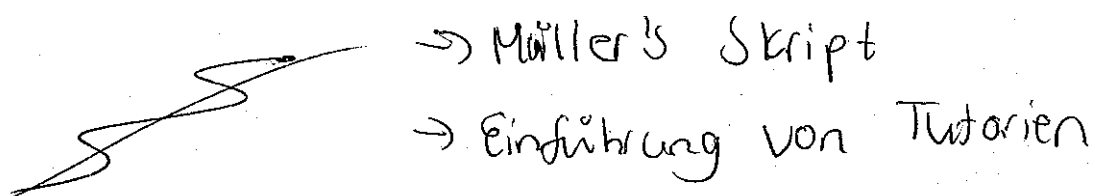 → Müller's Skript
→ Einführung von Tutorien